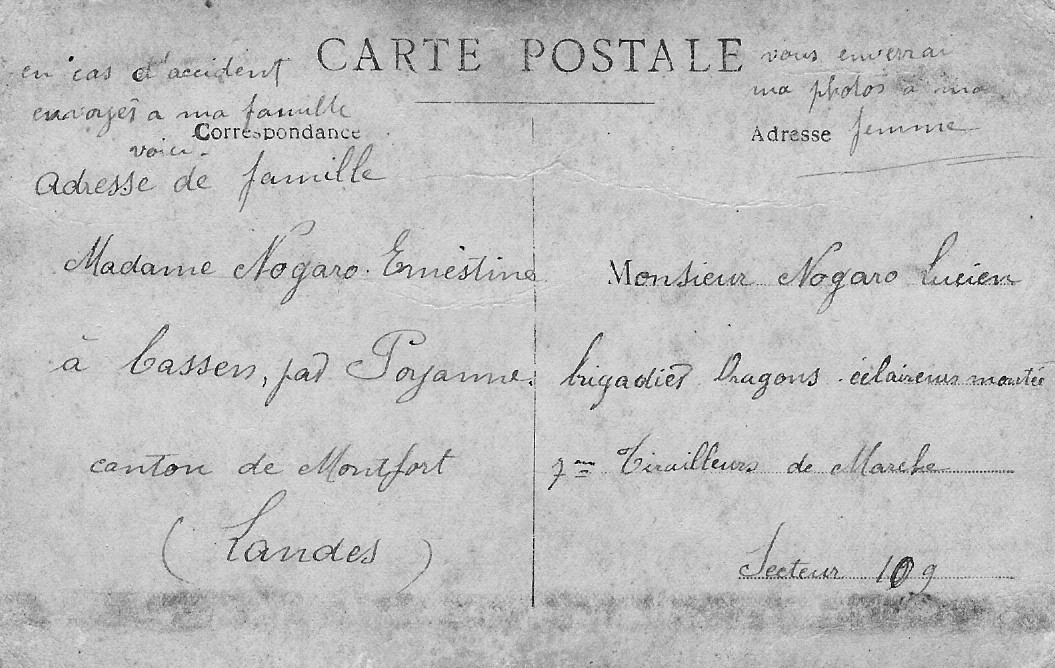 CARTE POSTALE
en cas d'accident
envoyés a ma famille
Correspondance
voici.
Adresse de famille
Madame Nogaro Ernestine
à Cassen, par Poyanne.
canton de Montfort
(Landes)
vous enverrai
ma photos a ma
Adresse femme
Monsieur Nogaro Lucien
brigadier Dragons éclaireurs montée
7me Tirailleurs de Marche
Secteur 109